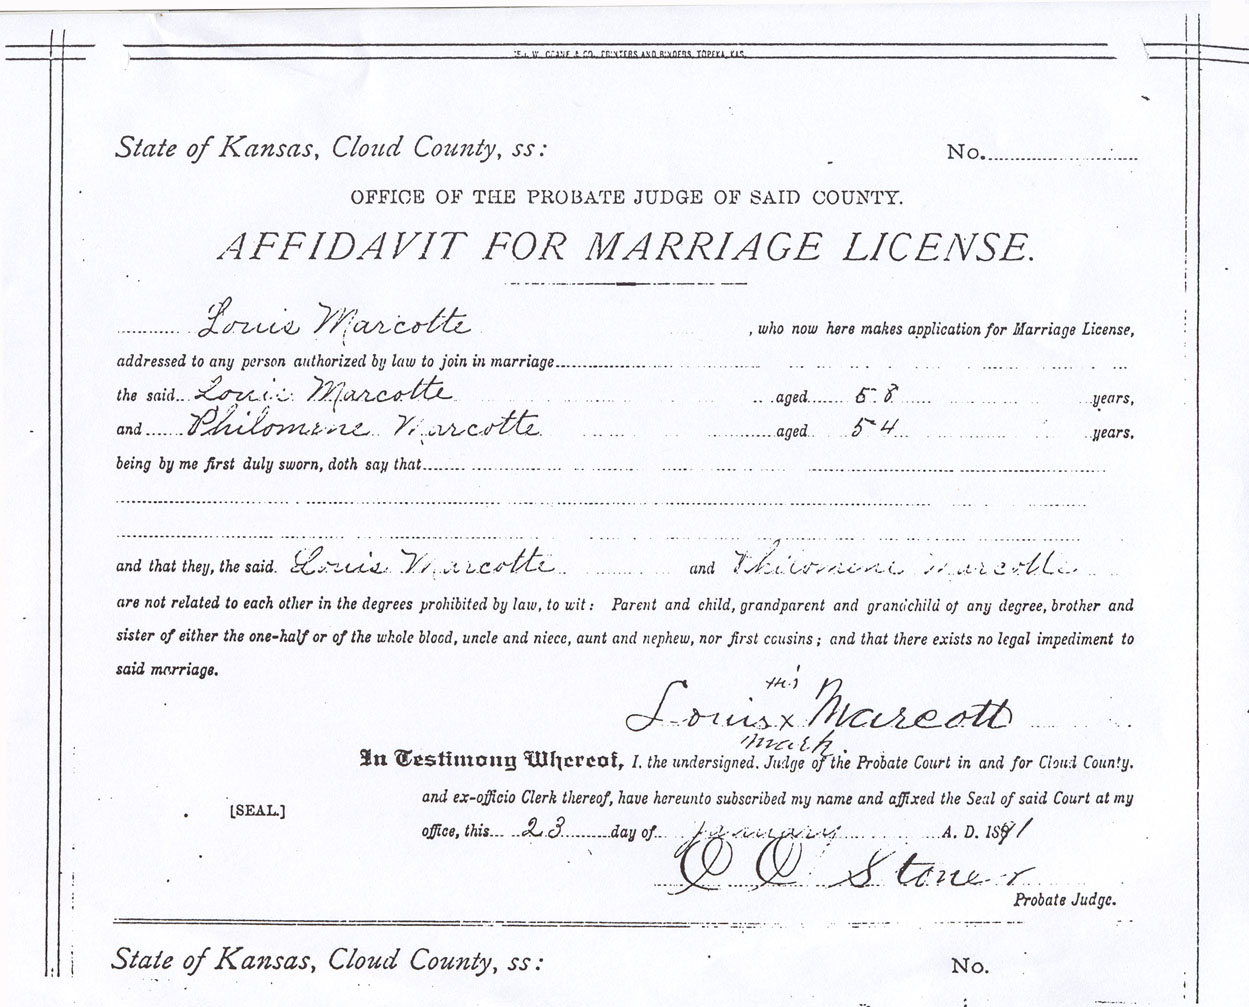 GEO. W. CRANE & CO., PRINTERS AND BINDERS, TOPEKA, KAS.
State of Kansas, Cloud County, ss: No.
OFFICE OF THE PROBATE JUDGE OF SAID COUNTY.
AFFIDAVIT FOR MARRIAGE LICENSE.
Louis Marcotte , who now here makes application for Marriage License,
addressed to any person authorized by law to join in marriage
the said Louis Marcotte aged 58 years,
and Philomene Marcotte aged 54 years,
being by me first duly sworn, doth say that
and that they, the said Louis Marcotte and Philomene Marcotte
are not related to each other in the degrees prohibited by law, to wit: Parent and child, grandparent and grandchild of any degree, brother and
sister of either the one-half or of the whole blood, uncle and niece, aunt and nephew, nor first cousins; and that there exists no legal impediment to
said marriage.
his
Louis x Marcott
mark.
In Testimony Whereof, I, the undersigned, Judge of the Probate Court in and for Cloud County,
and ex-officio Clerk thereof, have hereunto subscribed my name and affixed the Seal of said Court at my
[SEAL.]
office, this 23 day of January A. D. 1891
Stoner
Probate Judge.
State of Kansas, Cloud County, ss: No.